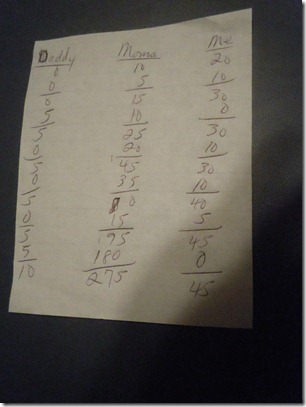 Daddy Moma Me
0 10 20
0 5 10
0 15 30
5 10 0
5 25 30
0 20 10
5 45 30
0 35 10
5 80 40
0 15 5
5 95 45
5 180 0
10 275 45